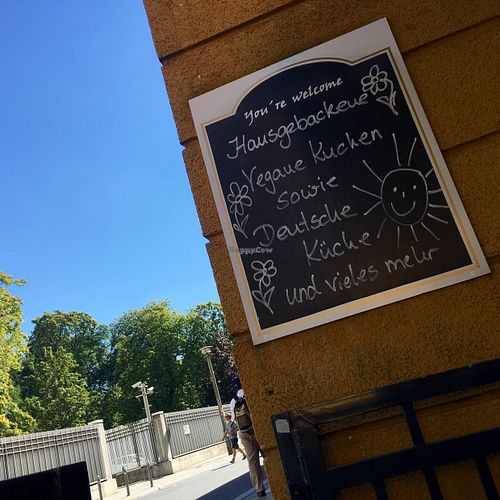 You're welcome
Hausgebackene
Vegane Kuchen
sowie
Deutsche
Küche
und vieles mehr
HappyCow